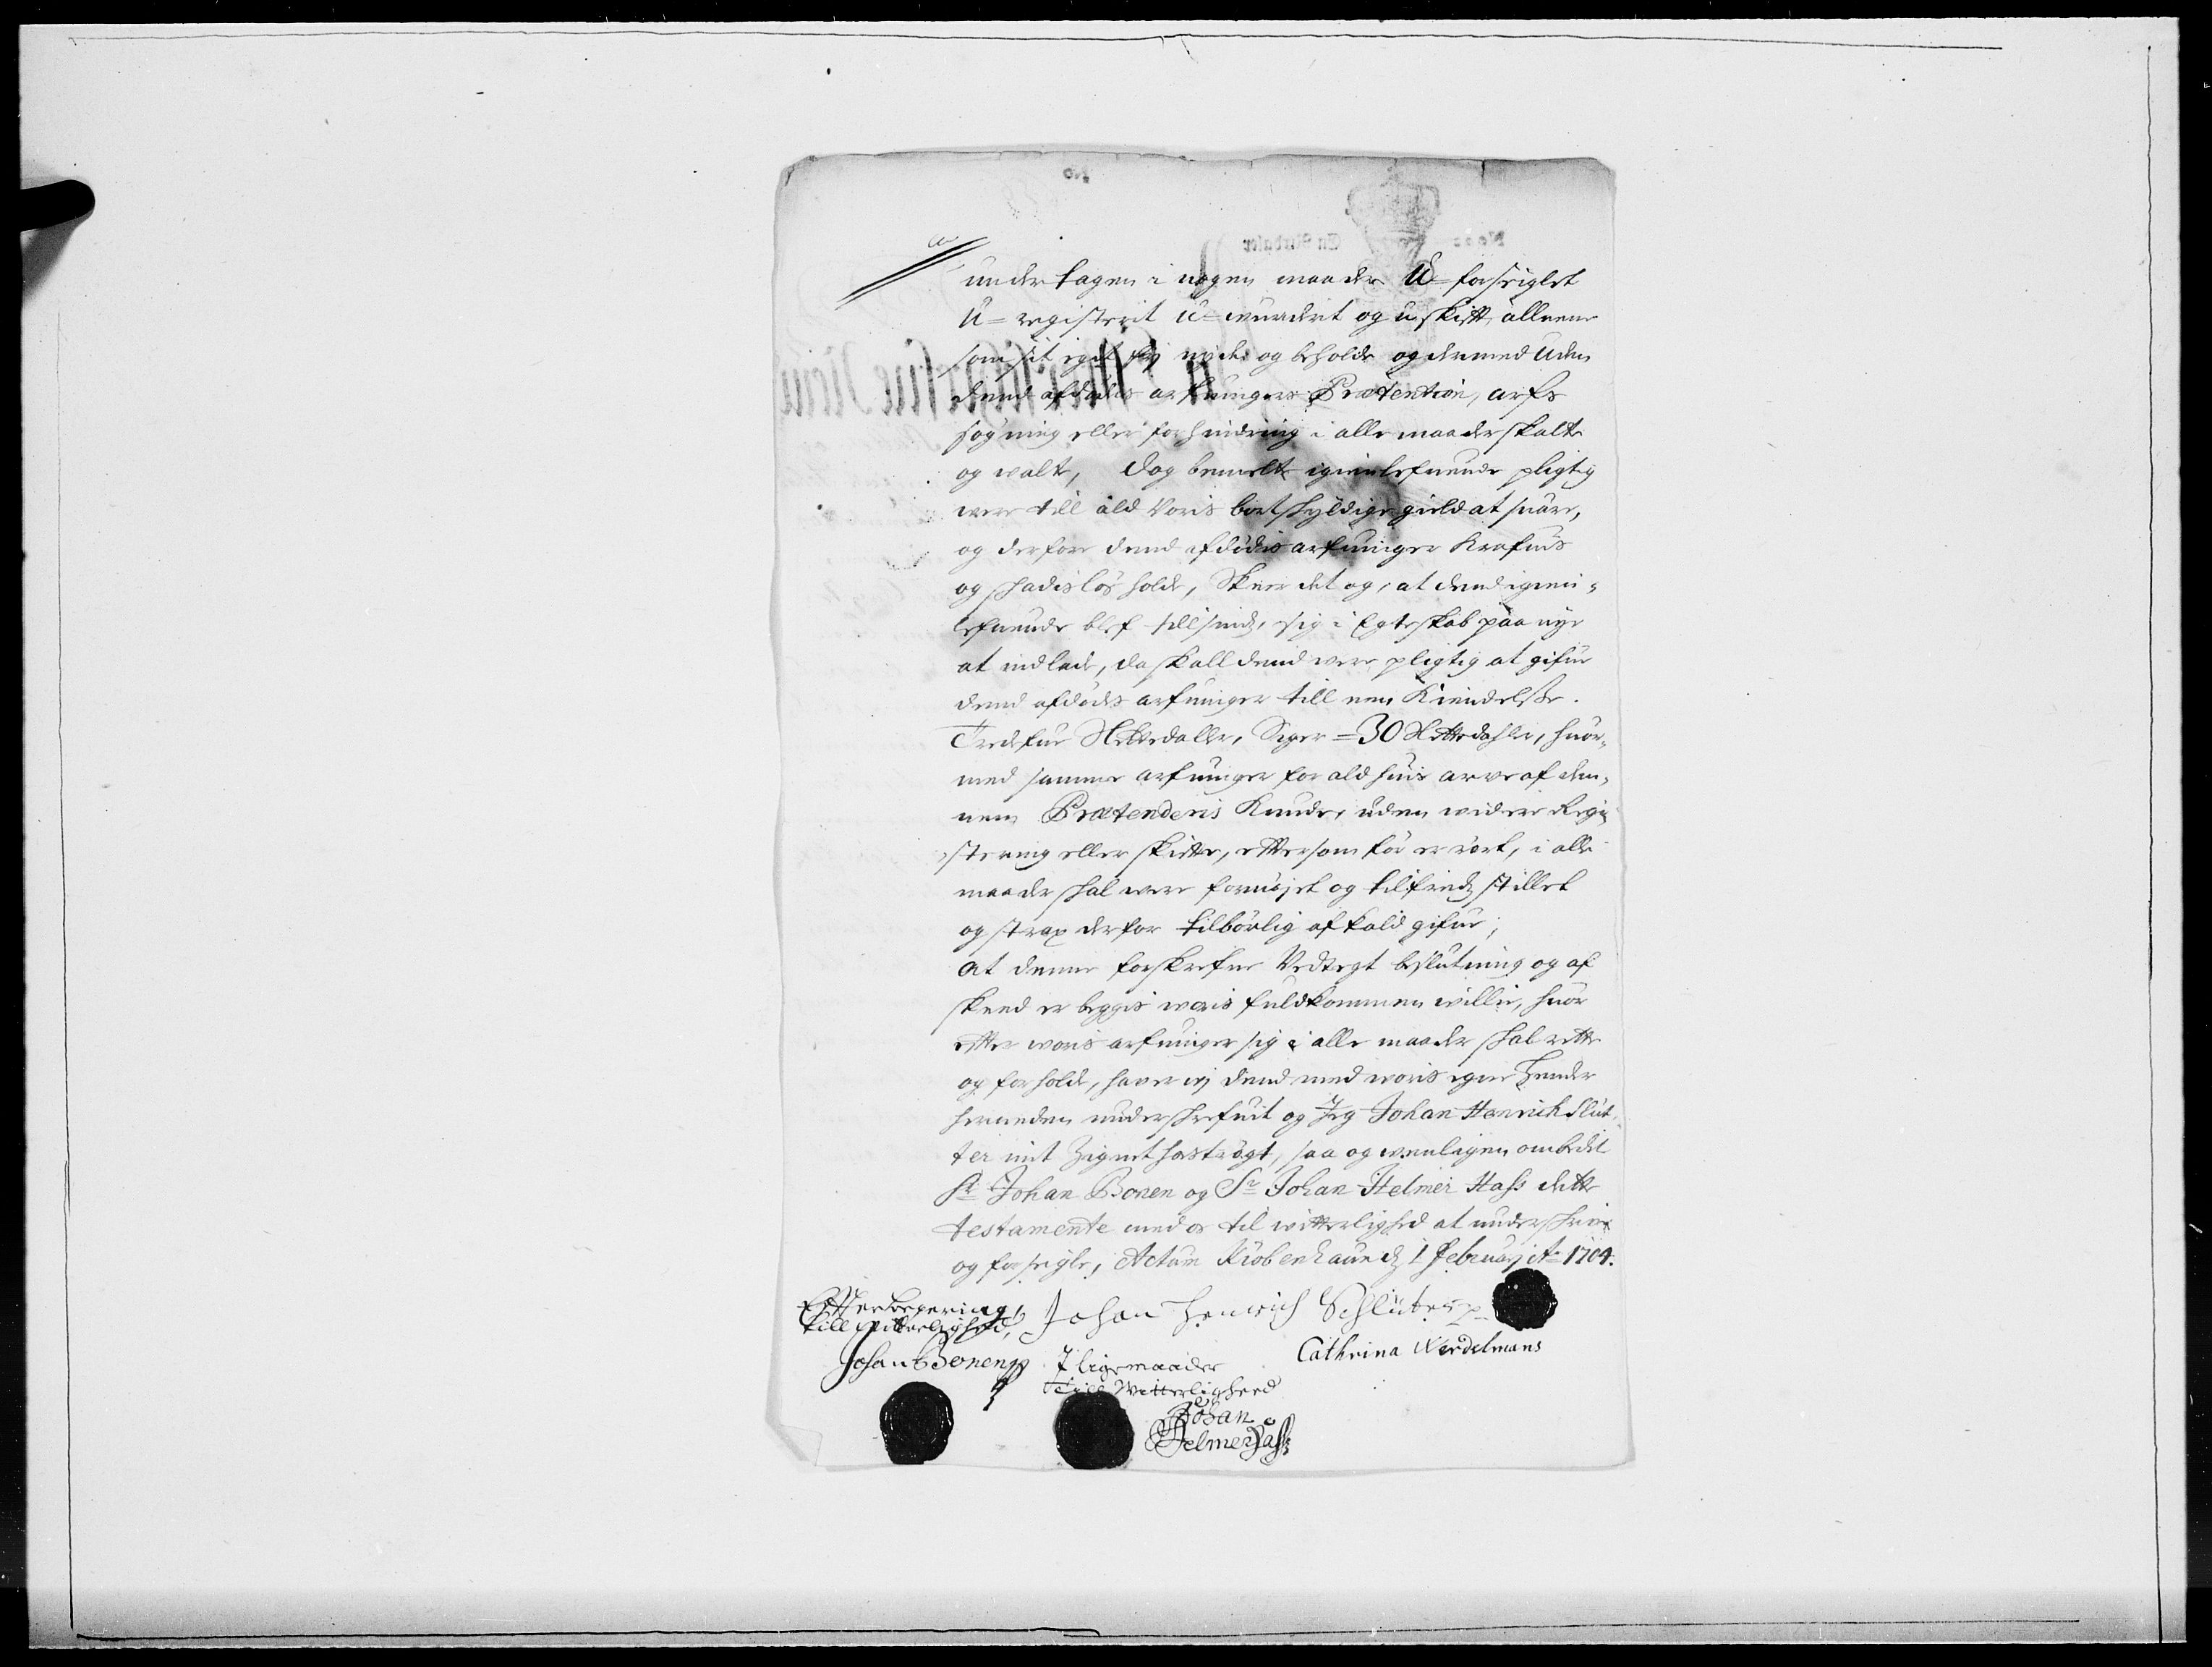 undertagen i nogen maader U=forseiglet
U=registerit U=vurderit og u skifft alleene
som sit eget frj nyde og beholde og dermed uden
dend afdødes arfvingers Prætention, arfs
søgning eller forhindring i alle maader skalte
og valte, dog bemelte igienlefvende pligtig
were till ald voris bortskyldige gield at svare,
og derfore dend afdødis arfvinger Krafvis
og skadisløs holde, Skeer det og, at dend igien-
lefvende blef till sindz, sig i Egteskab paa nye
at indlade, da skall dend were pligtig at gifve
dend afdødes arfvinger till een Kiendelsse.
Tredefve Slettedaller, Siger =30 Slettedahler, hvor-
med samme arfvinger for ald hvis arve af den-
nem Prætenderis Kunde, uden widere Regi-
stering eller skiffte, efftersom før er rørt, i alle
maader skal were fornøjet og tilfredz stillet
og strax derfor tilbørlig afkald gifve;
at denne forskrefne Vedtegt beslutning og af
skeed er begges woris fuldkommen willie, hvor
effter woris arfvinger sig i alle maader skal rette
og forholde, hafver wj dend med woris egne Hender
herneden underskrefvit og Jeg Johan Henrich Slut-
ter mit Zignet hoströgt, saa og wenligen ombedet
Sr Johan Bonen og Sr Johan Helmer Hass dette
testamente med os til witterlighed at underskrive
og forseigle, Actum Kiøbenhaun dz 1 Februarj Ao 1704.
Effter begering
till witterlighed,
Johan Henrich Schlüter
Johan Bonen
Cathrina Werdelmans
I lige maader
till Witterligheed
Johan
Helmer Hass